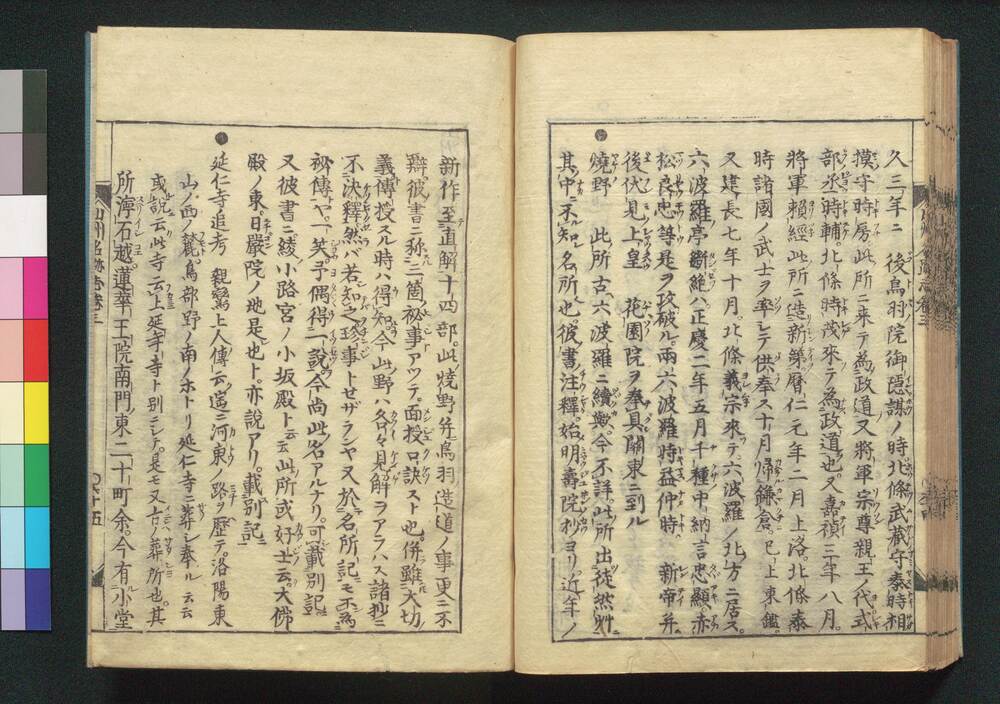 久三年ニ 後鳥羽院御隠謀ノ時北條武蔵守泰時相
摸守時房此所ニ来テ為政道又將軍宗尊親王ノ代式
部丞時輔北條時茂來テ為政道也又嘉禎三年八月
將軍賴經此所ニ造新第曆仁元年二月上洛北條泰
時諸國ノ武士ヲ率シテ供奉ス十月帰鎌倉已上東鑑
又建長七年十月北條義宗來テ六波羅ノ北方ニ居ス
六波羅亭断絶ハ正慶二年五月千種中納言忠顯赤
松良忠等是ヲ攻破ル兩六波羅時益仲時 新帝并
後伏見上皇 花園院ヲ奉具關東ニ到ル
●燒野 此所古六波羅ニ續歟今不詳此所出徒然艸
其中不知名所也彼書注釋始明壽院抄ヨリ近年ノ
新作至直解十四部此燒野并鳥羽造道ノ事更ニ不
辭彼書ニ称三箇秘事アツテ面授口訣スト也併雖大切
義傳授スル時ハ得知今此野ハ各々見解ヲアラハス諸抄ニ
不決釋然バ若知之珍事トセザランヤ又於名所記ニモ不為
秘傳ヤ一笑予偶得一説今尚此名アルナリ可載別記
又彼書ニ綾小路宮ノ小坂殿ト云云此所或好士云大佛
殿ノ東日嚴院ノ地是也ト亦説アリ載別記ニ
●延仁寺追考 親鸞上人傳云遥ニ河東ノ路ヲ歷テ洛陽東
山ノ西ノ麓鳥部野ノ南ノホトリ延仁寺ニ葬シ奉ル云云
或説云此寺云上延寺寺ト別ニシテ是モ又古ノ葬所也其
所濘石越蓮華王院南門東二十町余今有小堂